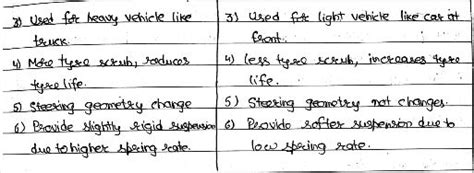 3) Used for heavy vehicle like
truck.
4) More tyre scrub, reduces
tyre life.
5) Steering geometry change
6) Provide slightly rigid suspension
due to higher spring rate.
3) Used for light vehicle like car at
front.
4) less tyre scrub, increases tyre
life.
5) Steering geometry not changes.
6) Provide softer suspension due to
low spring rate.